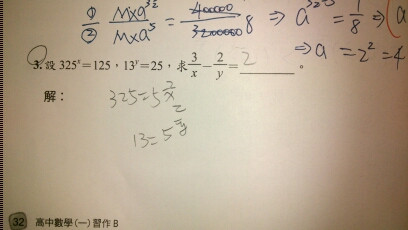 ① M×a^32 / ② M×a^5 = 40000 / 3200000 8 ⇒ a = 1/8 ⇒ (a
⇒ a = 2² = 4
3. 設 325^x=125，13^y=25，求 3/x − 2/y = 2 。
解：
325=5
13=5
32 高中數學(一)習作 B